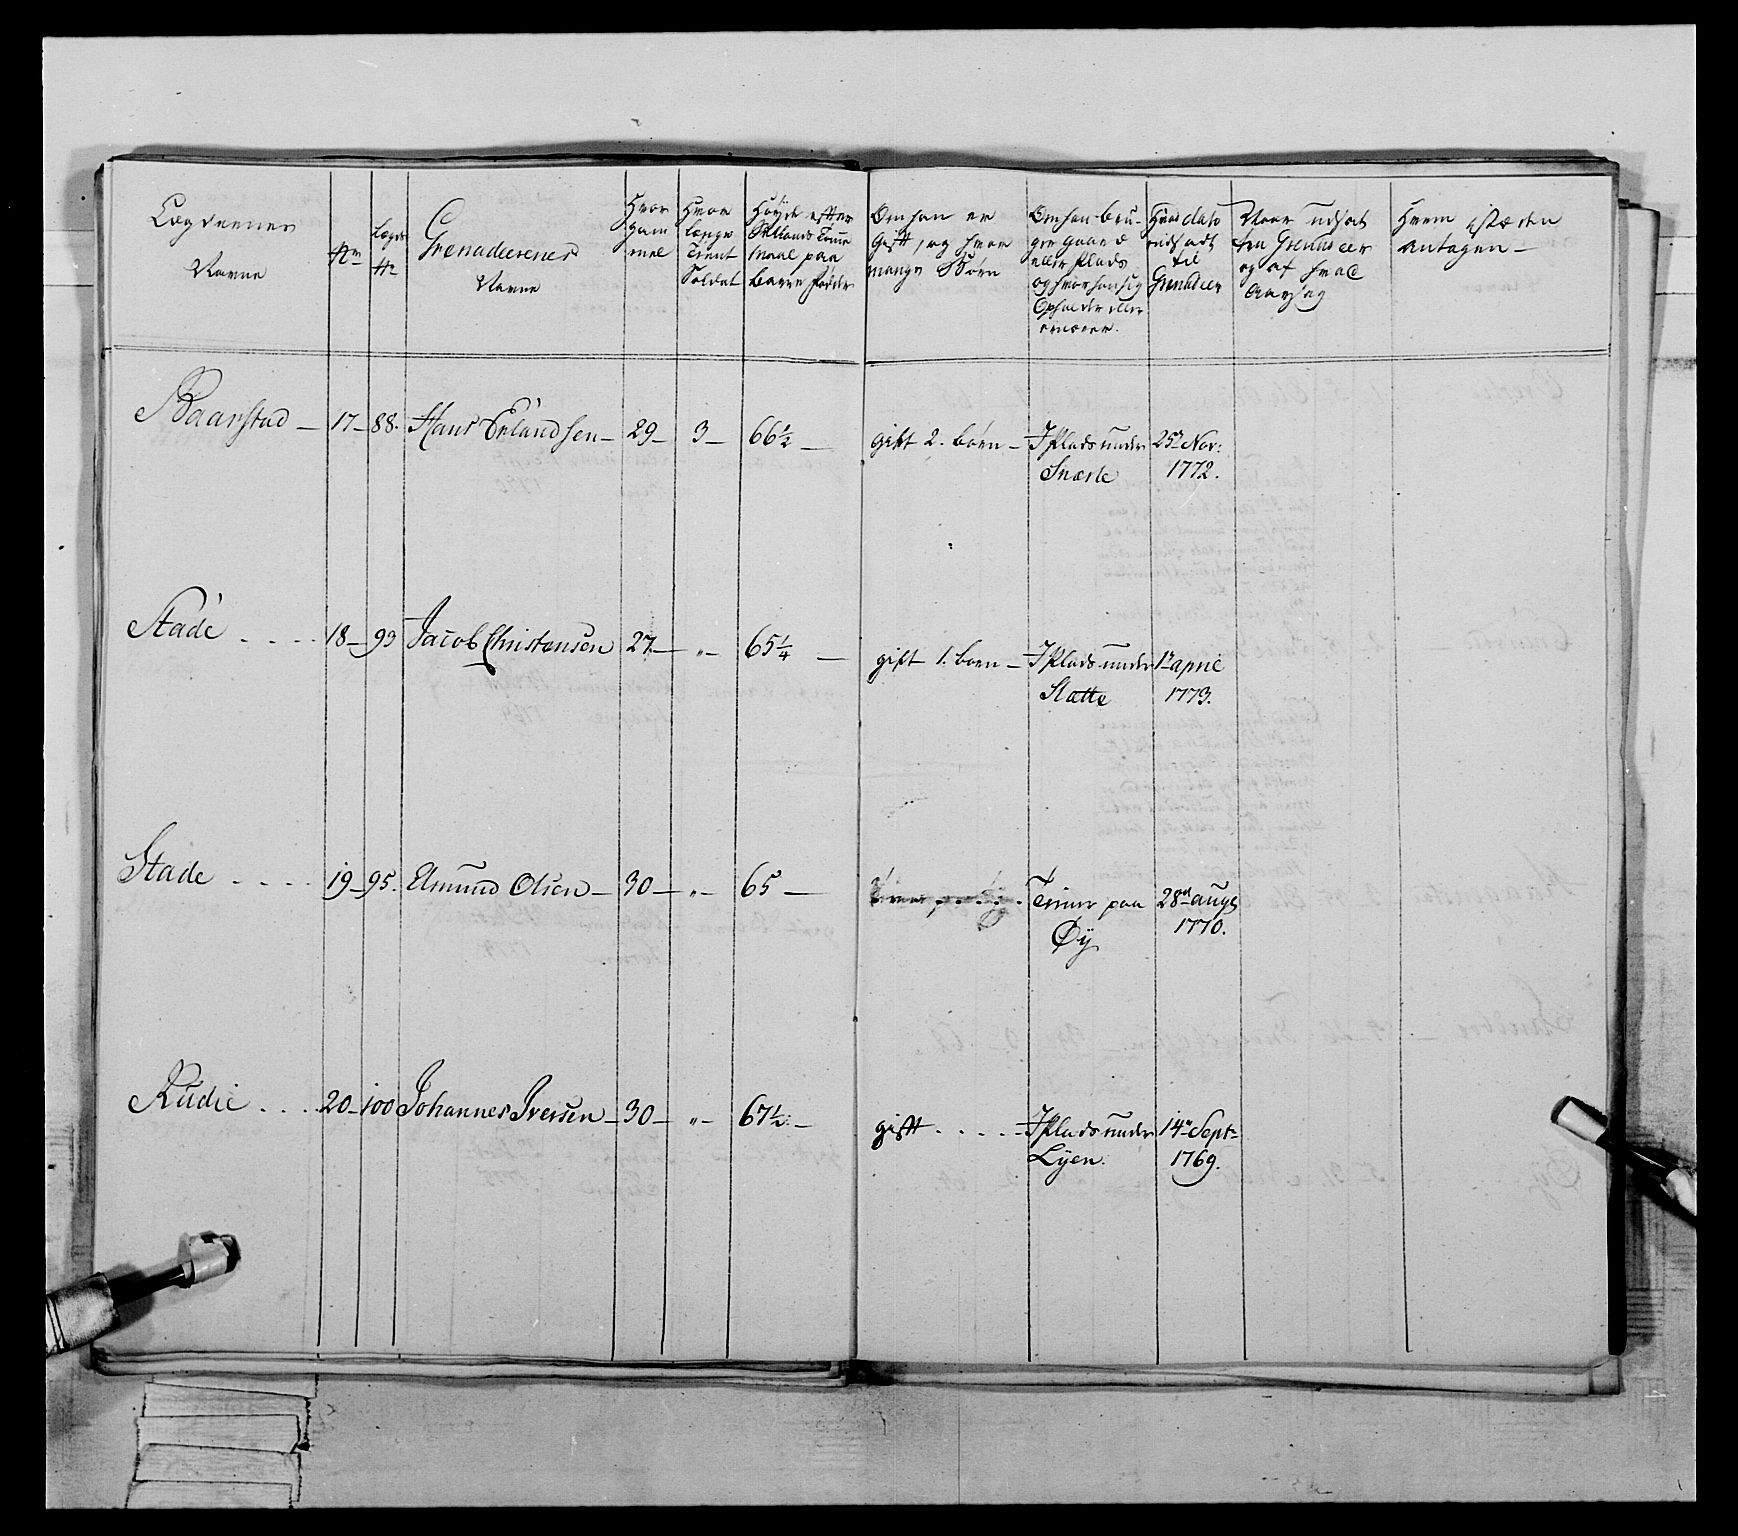 Lægdernes Navne
No
Lægds No
Grenadeerenes Navne
Hvor Gammel
Hvor længe Tient Soldat
Høyde efter Siellands Tomme Maal paa barre Fødder
Om han er Gift, og hvor mange Børn
Om han bruger Gaard eller Plads og hvor han sig Opholder eller ernærer.
Hvad dato udsadt til Grenadeer
Naar udsat fra Grenadeer og af hvad Aarsag
Hvem istæden antagen —
Baarstad — 17 — 88. Hans Erlandsen — 29 — 3 — 66½ — gift 2. børn — I Plads under Snærte 25de Nov: 1772.
Stade . . . . 18 — 99 Jacob Christensen 27 — „ — 65¼ — gift 1. barn — I Plads under Slatte 1te april 1773.
Stade . . . . 19 — 95. Amund Olsen — 30 — „ — 65 — Tiener paa Øy 28de augs 1770.
Rudie . . . . 20 — 100 Johannes Iversen — 30 — „ — 67½ — gift . . . . . — I Plads under Lyen. 14de Septr 1769.